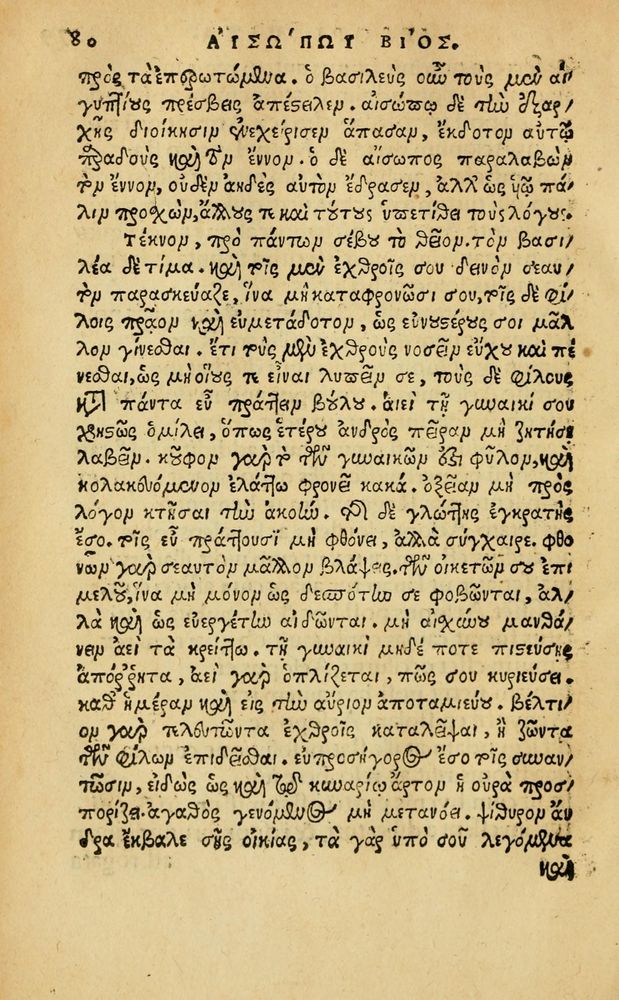 80 ΑΙΣΩ΄ΠΟΥ ΒΙ΄ΟΣ.
πρὸς τὰ ἐπηρωτώμενα. ὁ βασιλεὺς οὖν τοὺς μὲν αἰ/
γυπτίους πρέσβεις ἀπέστειλεν. αἰσώπῳ δὲ τὴν ἐξαρ/
χῆς διοίκησιν ἐνεχείρισεν ἅπασαν, ἔκδοτον αὐτῷ
παραδοὺς καὶ τὸν ἔννον. ὁ δὲ αἴσωπος παραλαβὼν
τὸν ἔννον, οὐδὲν ἀηδὲς αὐτὸν ἔδρασεν, ἀλλ' ὡς ὑῷ πά/
λιν προσχὼν, ἄλλους τε καὶ τούτους ὑπετίθει τοὺς λόγους.
Τέκνον, πρὸ πάντων σέβου τὸ θεῖον. τὸν βασι/
λέα δὲ τίμα. καὶ τοῖς μὲν ἐχθροῖς σου δεινὸν σεαυ/
τὸν παρασκεύαζε, ἵνα μὴ καταφρονῶσί σου, τοῖς δὲ φί/
λοις πρᾶον καὶ εὐμετάδοτον, ὡς εὐνουστέρους σοι μᾶλ
λον γίνεσθαι. ἔτι τοὺς μὲν ἐχθροὺς νοσεῖν εὔχου καὶ πέ
νεσθαι, ὡς μὴ οἵους τε εἶναι λυπεῖν σε, τοὺς δὲ φίλους
κατὰ πάντα εὖ πράττειν βούλου. ἀεὶ τῇ γυναικί σου
χρηστῶς ὁμίλει, ὅπως ἑτέρου ἀνδρὸς πεῖραν μὴ ζητήσῃ
λαβεῖν. κοῦφον γὰρ τὸ τῶν γυναικῶν ἐστι φῦλον, καὶ
κολακευόμενον ἐλάττω φρονεῖ κακά. ὀξεῖαν μὴ πρὸς
λόγον κτῆσαι τὴν ἀκοήν. τῆς δὲ γλώττης ἐγκρατὴς
ἔσο. τοῖς εὖ πράττουσι μὴ φθόνει, ἀλλὰ σύγχαιρε. φθο
νῶν γὰρ σεαυτὸν μᾶλλον βλάψεις. τῶν οἰκετῶν σου ἐπι
μελοῦ, ἵνα μὴ μόνον ὡς δεσπότην σε φοβῶνται, ἀλ/
λὰ καὶ ὡς εὐεργέτην αἰδῶνται. μὴ αἰσχύνου μανθά/
νειν ἀεὶ τὰ κρείττω. τῇ γυναικὶ μηδέ ποτε πιστεύσῃς
ἀπόῤῥητα, ἀεὶ γὰρ ὁπλίζεται, πῶς σου κυριεύσει.
καθ' ἡμέραν καὶ εἰς τὴν αὔριον ἀποταμιεύου. βέλτι/
ον γὰρ τελευτῶντα ἐχθροῖς καταλεῖψαι, ἢ ζῶντα
τῶν φίλων ἐπιδεῖσθαι. εὐπροσήγορος ἔσο τοῖς συναν/
τῶσιν, εἰδὼς ὡς καὶ τῷ κυναρίῳ ἄρτον ἡ οὐρὰ προσ/
πορίζει. ἀγαθὸς γενόμενος μὴ μετανόει. ψίθυρον ἄν
δρα ἔκβαλε σῆς οἰκίας, τὰ γὰρ ὑπὸ σοῦ λεγόμενα
καὶ